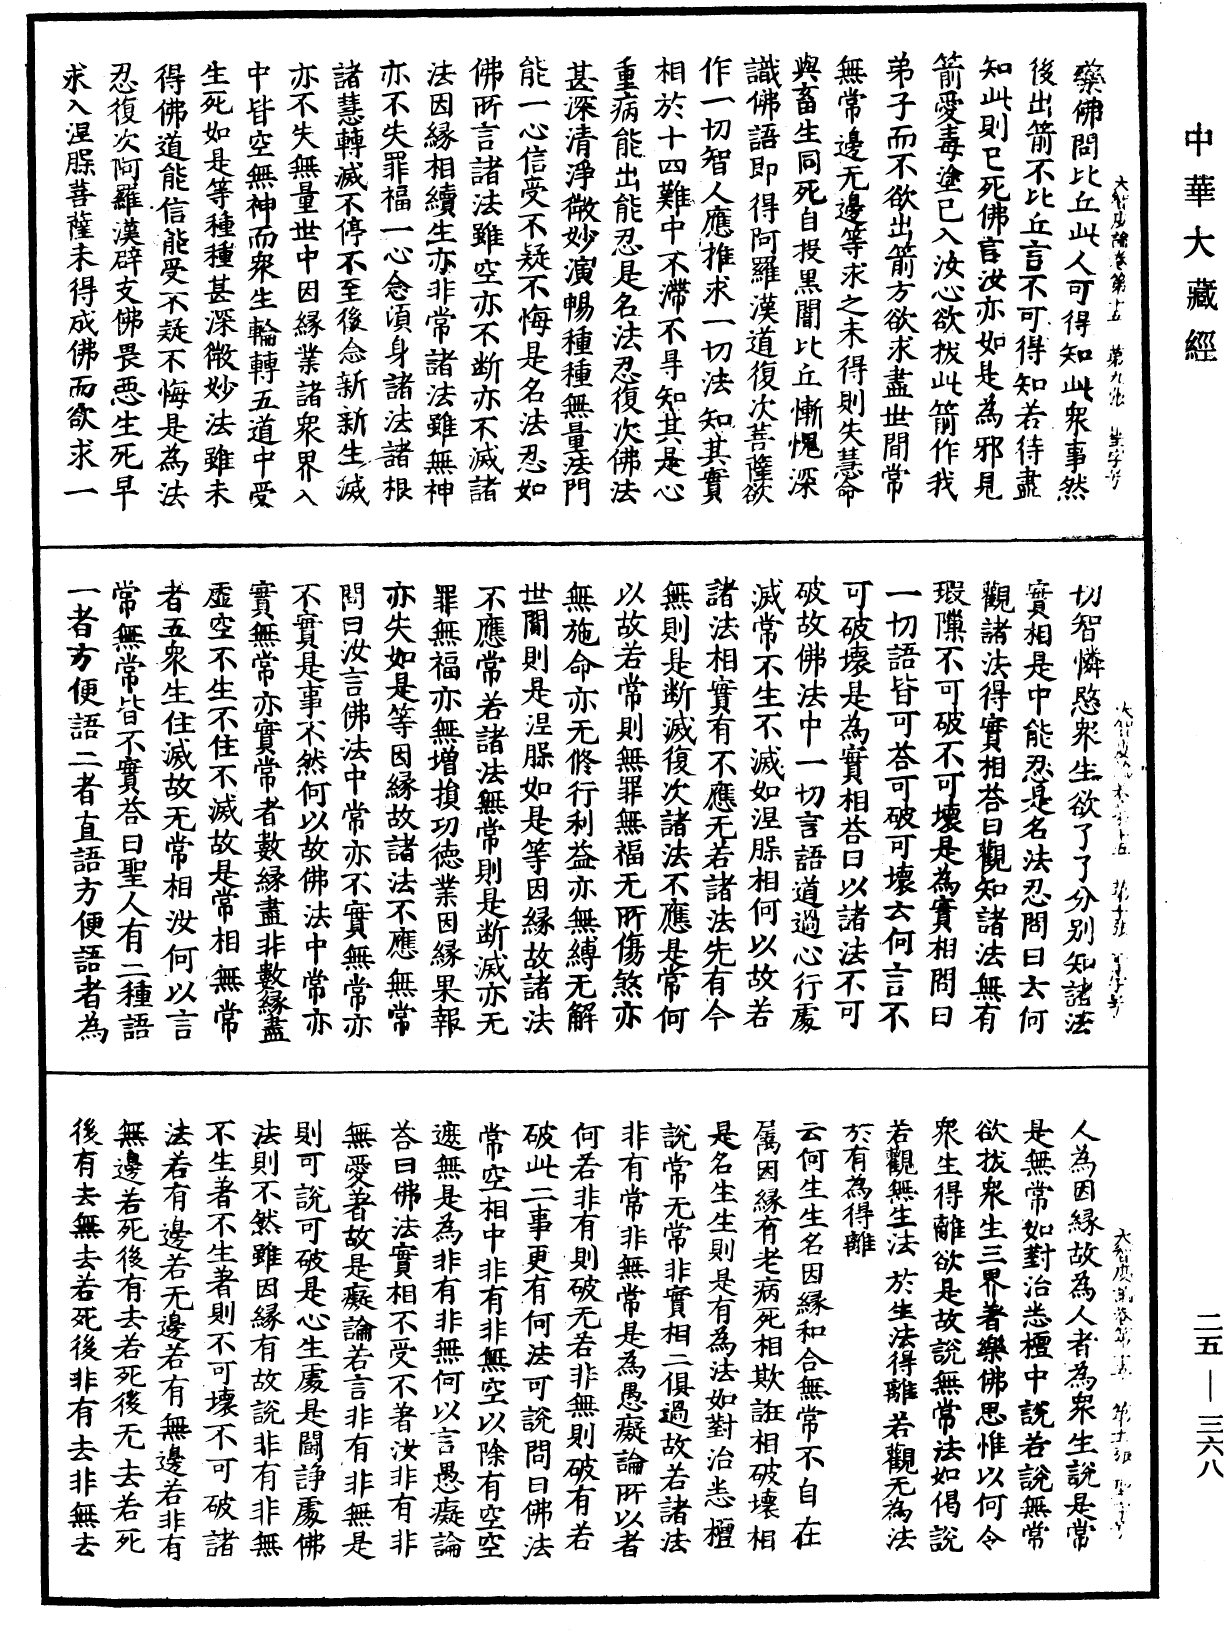 中華大藏經
藥佛問比丘此人可得知此衆事然
後出箭不比丘言不可得知若待盡
知此則已死佛言汝亦如是為邪見
箭愛毒塗已入汝心欲拔此箭作我
弟子而不欲出箭方欲求盡世間常
無常邊无邊等求之未得則失慧命
與畜生同死自投黑闇比丘慚愧深
識佛語即得阿羅漢道復次菩薩欲
作一切智人應推求一切法知其實
相於十四難中不滯不㝵知其是心
重病能出能忍是名法忍復次佛法
甚深清淨微妙演暢種種無量法門
能一心信受不疑不悔是名法忍如
佛所言諸法雖空亦不斷亦不滅諸
法因緣相續生亦非常諸法雖無神
亦不失罪福一心念頃身諸法諸根
諸慧轉滅不停不至後念新新生滅
亦不失無量世中因緣業諸衆界入
中皆空無神而衆生輪轉五道中受
生死如是等種種甚深微妙法雖未
得佛道能信能受不疑不悔是為法
忍復次阿羅漢辟支佛畏惡生死早
求入涅槃菩薩未得成佛而欲求一
大智度論卷第十五 第九張
切智憐愍衆生欲了了分別知諸法
實相是中能忍是名法忍問曰云何
觀諸法得實相荅曰觀知諸法無有
瑕隟不可破不可壞是為實相問曰
一切語皆可荅可破可壞云何言不
可破壞是為實相荅曰以諸法不可
破故佛法中一切言語道過心行處
滅常不生不滅如涅槃相何以故若
諸法相實有不應无若諸法先有今
無則是斷滅復次諸法不應是常何
以故若常則無罪無福无所傷煞亦
無施命亦无修行利益亦無縛无解
世間則是涅槃如是等因緣故諸法
不應常若諸法無常則是斷滅亦无
罪無福亦無增損功德業因緣果報
亦失如是等因緣故諸法不應無常
問曰汝言佛法中常亦不實無常亦
不實是事不然何以故佛法中常亦
實無常亦實常者數緣盡非數緣盡
虛空不生不住不滅故是常相無常
者五衆生住滅故无常相汝何以言
常無常皆不實荅曰聖人有二種語
一者方便語二者直語方便語者為
人為因緣故為人者為衆生說是常
是無常如對治悉檀中說若說無常
欲拔衆生三界著樂佛思惟以何令
衆生得離欲是故說無常法如偈說
若觀無生法 於生法得離 若觀无為法
於有為得離
云何生生名因緣和合無常不自在
屬因緣有老病死相欺誑相破壞相
是名生生則是有為法如對治悉檀
說常无常非實相二俱過故若諸法
非有常非無常是為愚癡論所以者
何若非有則破无若非無則破有若
破此二事更有何法可說問曰佛法
常空相中非有非無空以除有空空
遮無是為非有非無何以言愚癡論
荅曰佛法實相不受不著汝非有非
無愛著故是癡論若言非有非無是
則可說可破是心生處是鬪諍處佛
法則不然雖因緣有故說非有非無
不生著不生著則不可壞不可破諸
法若有邊若无邊若有無邊若非有
無邊若死後有去若死後无去若死
後有去無去若死後非有去非無去
二五—三六八